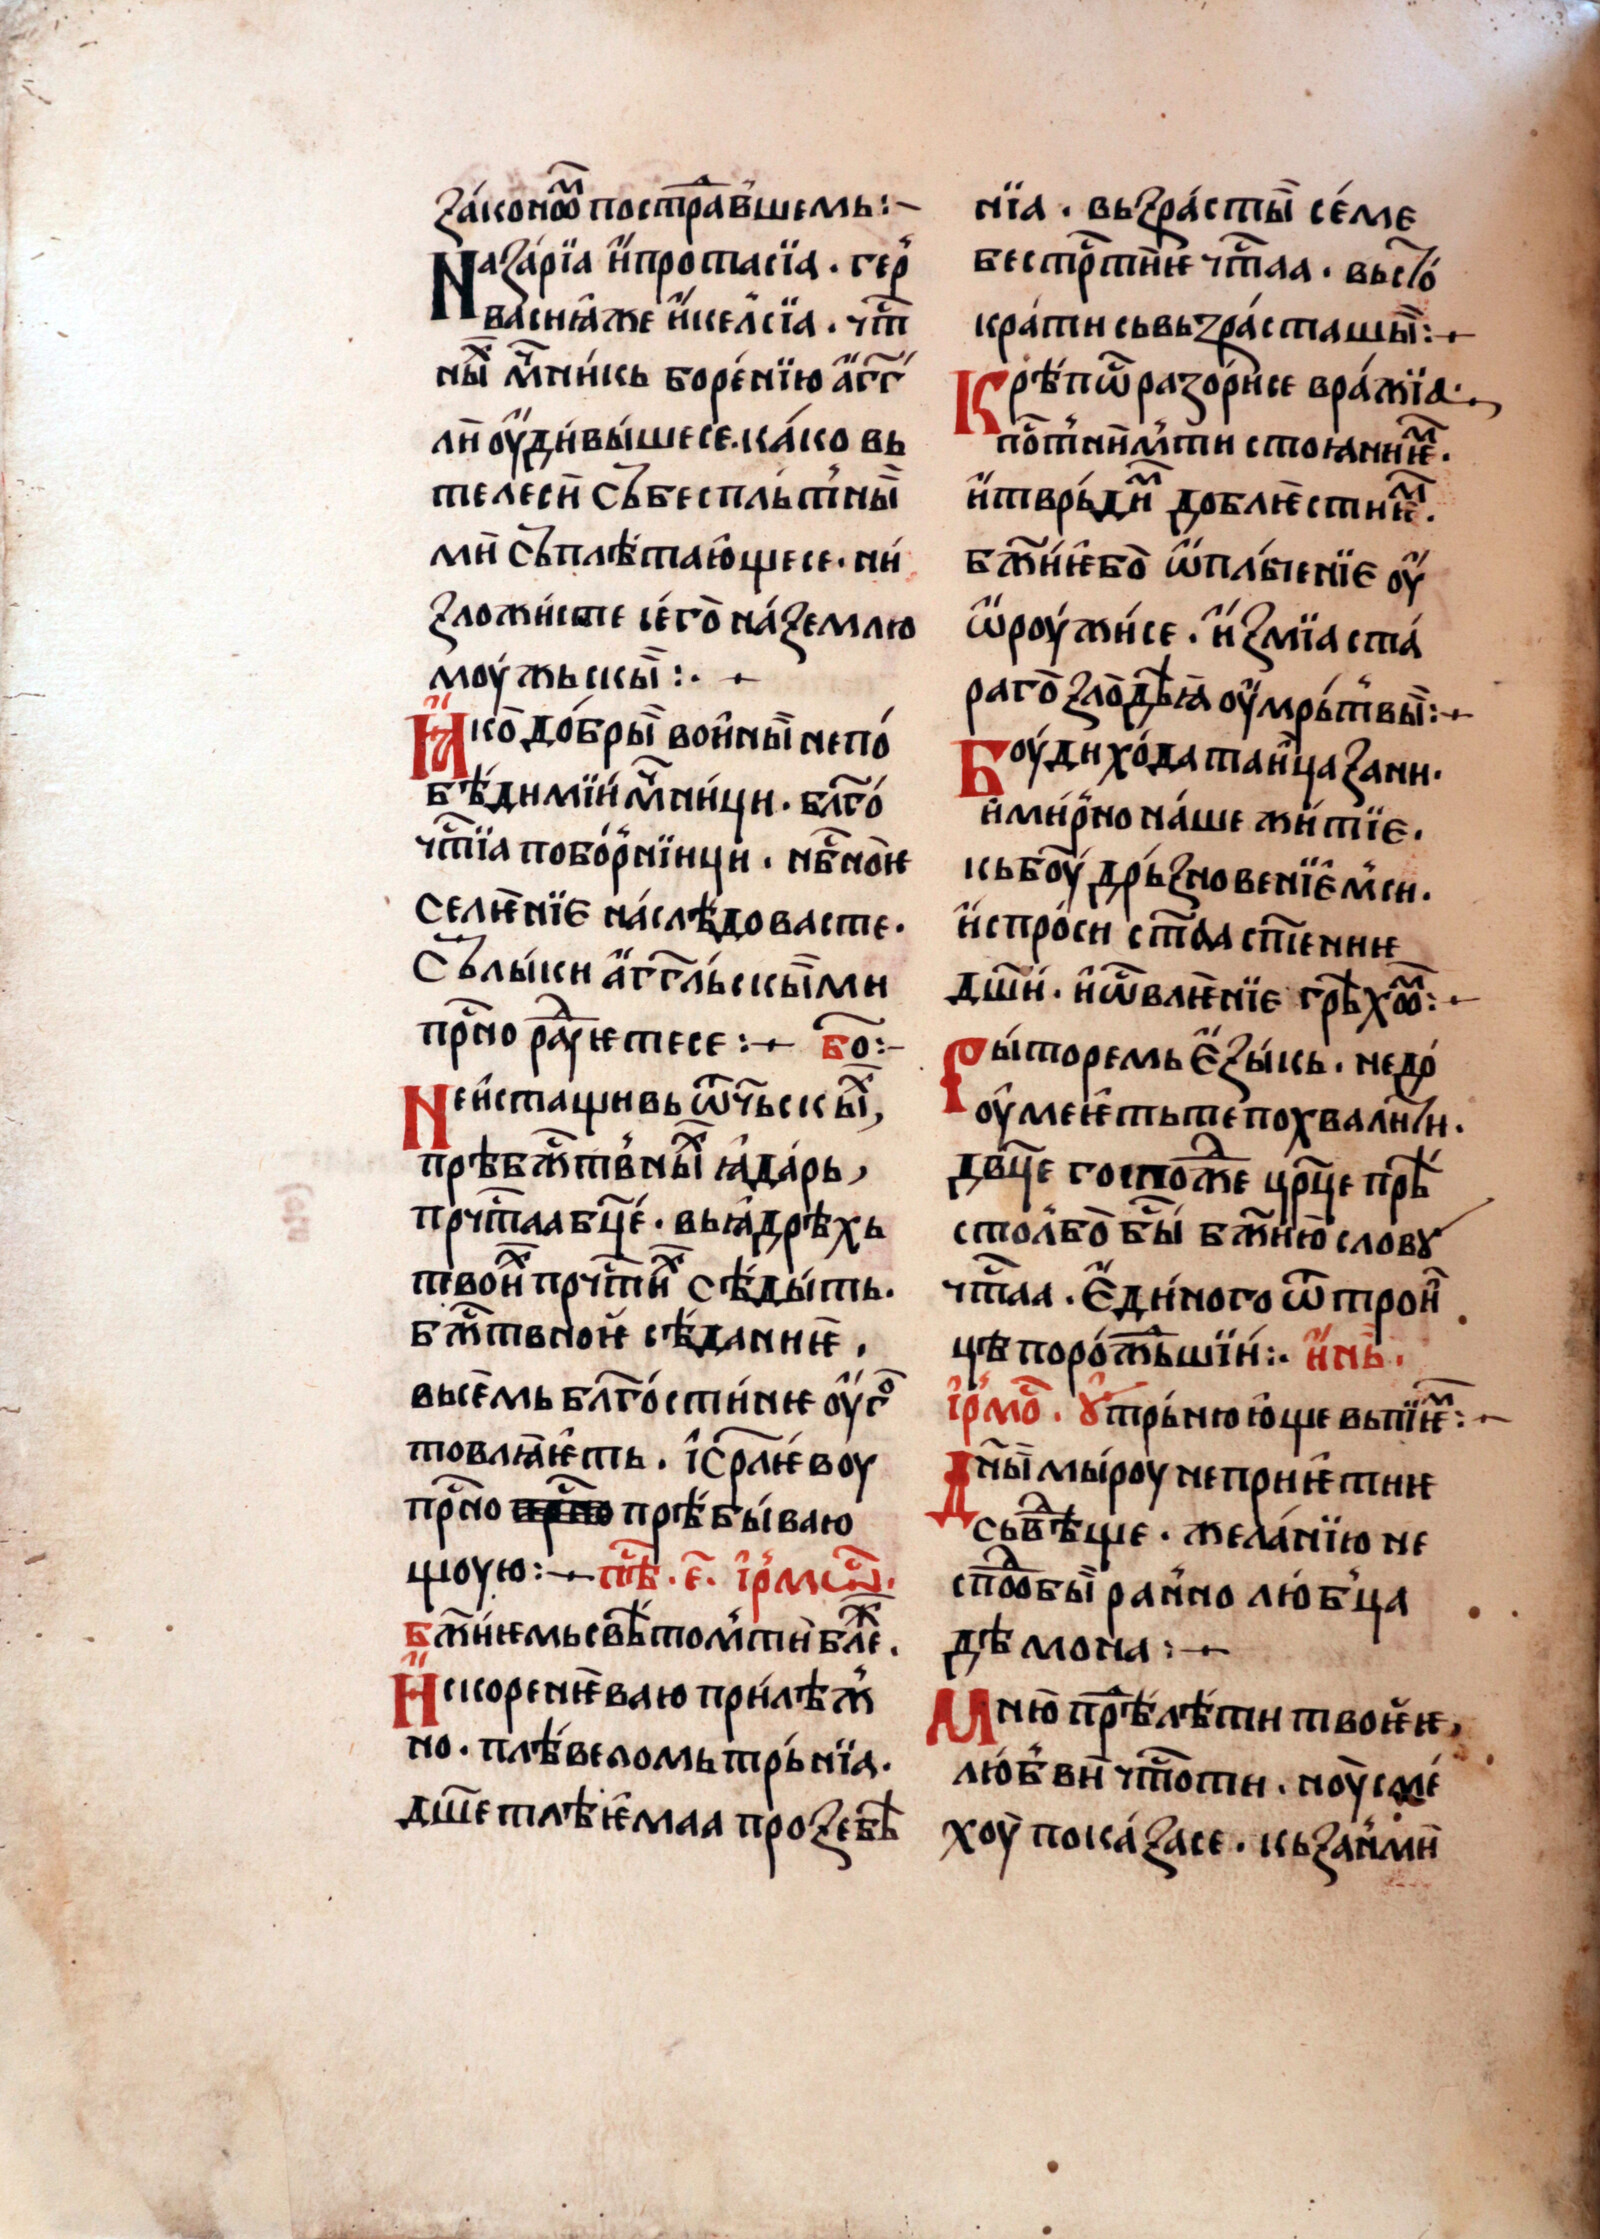 зако́нѡⷨ пострⷣа́вшемь:~
Наза́рїа и҆ протасїа. гер̾
васиꙗ҆же и҆ келсїа. чтⷭ
ныⷯ мⷱ҇никь боре́нїю а҆гг҃
ли ѹ҆диви́шесе. ка́ко вь
телеси съ бесплꙿтны
ми съплѣта́ющесе. ни
зложи́сте сего̀ на́ землю
моу́жьскы:. ~
Ꙗ҆ко до́бры во́ины непо
бѣ́димїи мⷱ҇ници. блг҃о
чтⷭїа побо́рнїици. нбⷭ҇ное
селе́нїе на́слѣдовасте.
съ лы́ки а҆гг҃льскыми
прⷭ҇но раⷣꙋетесе:~ бо:~
Неи́стащивь ѿчьскыⷯ,
прѣбжⷭ҇твныⷯ ꙗ҆дарь,
прчⷭ҇таа бц҃е. вь ꙗ҆дрѣхь
твоиⷯ прчⷭ҇тиⷯ сѣды́ть.
бжⷭ҇твное сѣ́данїе,
высе́мь блг҃ости́не ѹ҆го
товлꙗ́еть. і҆сра҃лево́у
прⷭ҇но прѣбы́ваю
щоую:~ пⷭ҇ⷩ҇ѣ. е҃. і҆рмѡⷭ.
бж҃иемь свѣтомꙿ ти блⷤе.
И҆скоренева́ю при́лѣж
но. плѣ́веломь трь́нїа.
дш҃е тлѣемаа прозебь
нїа. вьзра́сты се́ме
бестрⷭ҇тне чⷭ҇таа. вь сто́
кра́ти сьвьзра́сташы:~
Крѣ́пѡⷭ разо́рисе вра́жїа.
поⷭ҇тꙿни мⷭ҇ти стоꙗниеⷨ.
и҆ тврь́диⷨ до́блестиеⷨ.
бж҃ие бо̀ ѡ҆плъче́нїе ѹ҆
ѡ҆роужи́се. и҆ змїа ста́
раго̀ злодѣꙗ ѹ҆мрь́твы:~
Боу́ди хо́датаица за ни.
и҆ ми́рно на́ше жи́тїе.
кь бо҃у дрьзнове́нїемꙿ си.
и҆спро́си ст҃аа сп҃сение
дш҃и. и҆ ѡ҆ставле́нїе грѣ́хѡⷨ:~
Ры́торемь е҆зы́кь. недо
оу҆мее́ть те похвали́ти.
дв҃це госпожⷣе цр҃це прѣ
столꙿ бо̀ бы́ бж҃ию сло́вꙋ
чⷭ҇таа. е҆ди́ного ѿ трои
це поро́жⷣьшїи:. и҆нь.
і҆рмоⷭ. Ꙋ҆трь́нююще вьпїеⷨ:~
Дн҃ы мы́роу неприе́тне
сьвⷣѣще. жела́нїю не
спⷣобы ра́нно лю́бꙿца
де́мона:~
Мню прѣле́ти твое́е,
лю́бꙿви чⷭ҇тоти. но́ усме́
хоу пока́засе. кь за́ими